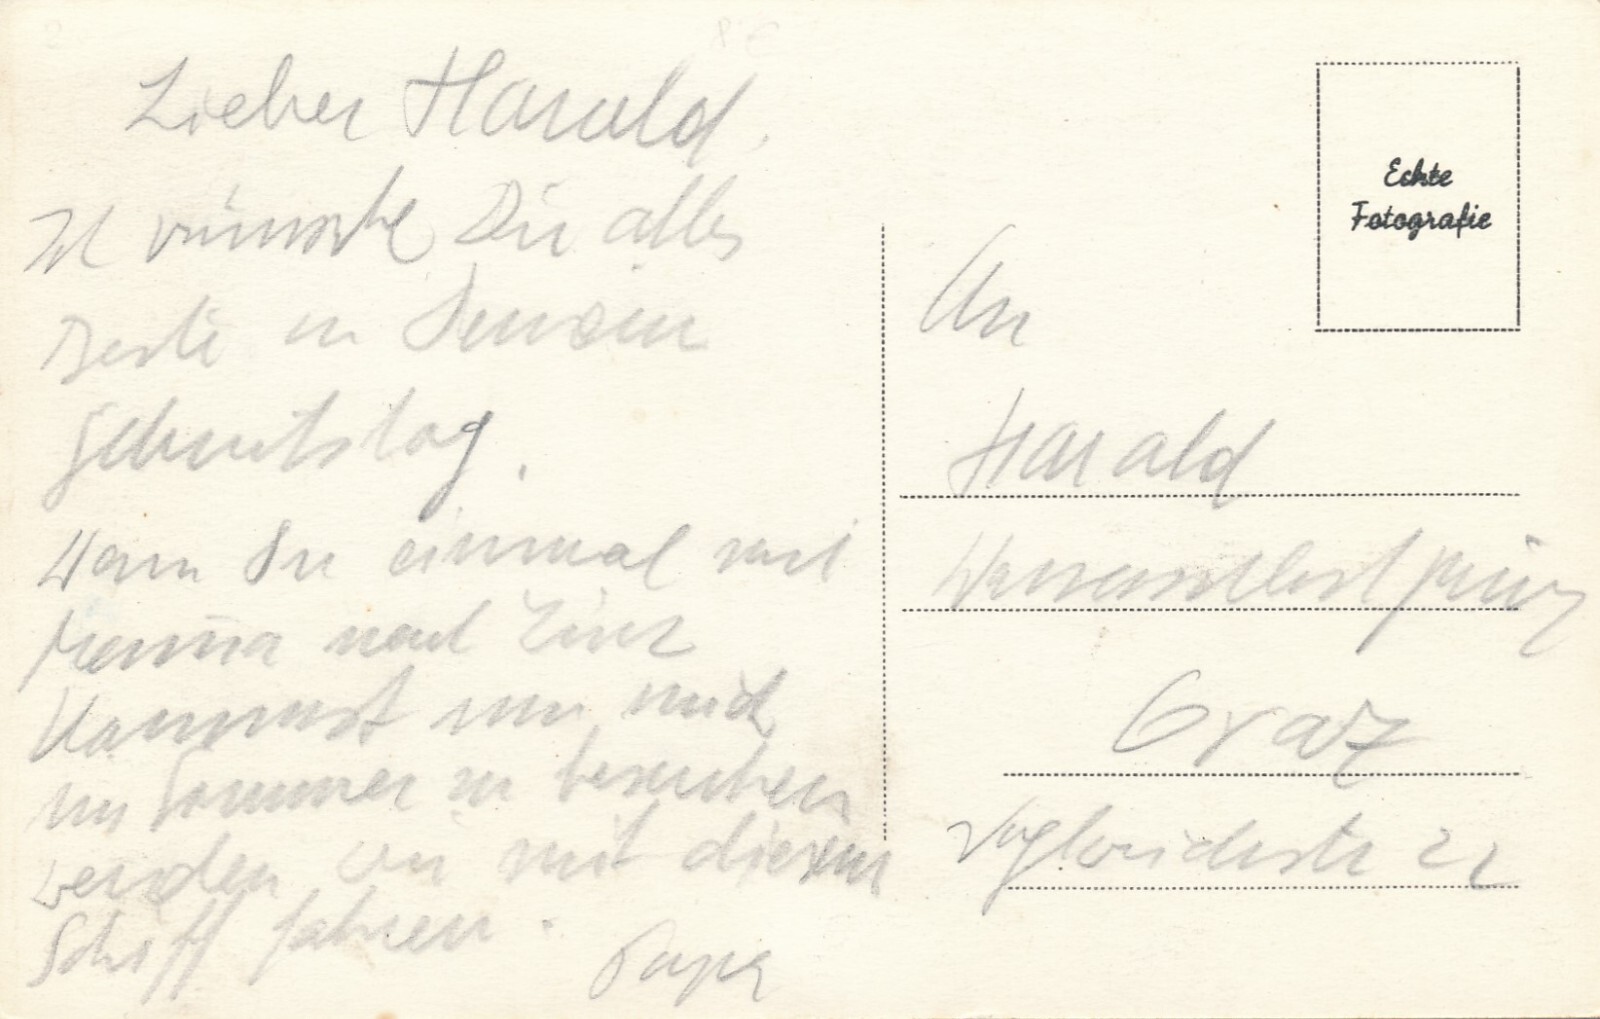 Lieber Harald,
Ich wünsche Dir alles
Beste zu Deinem
Geburtstag.
Wenn Du einmal mit
Mama nach Linz
kommst um mich
im Sommer zu besuchen
werden wir mit diesem
Schiff fahren.
Papa
Echte
Fotografie
An
Harald
Graz
22